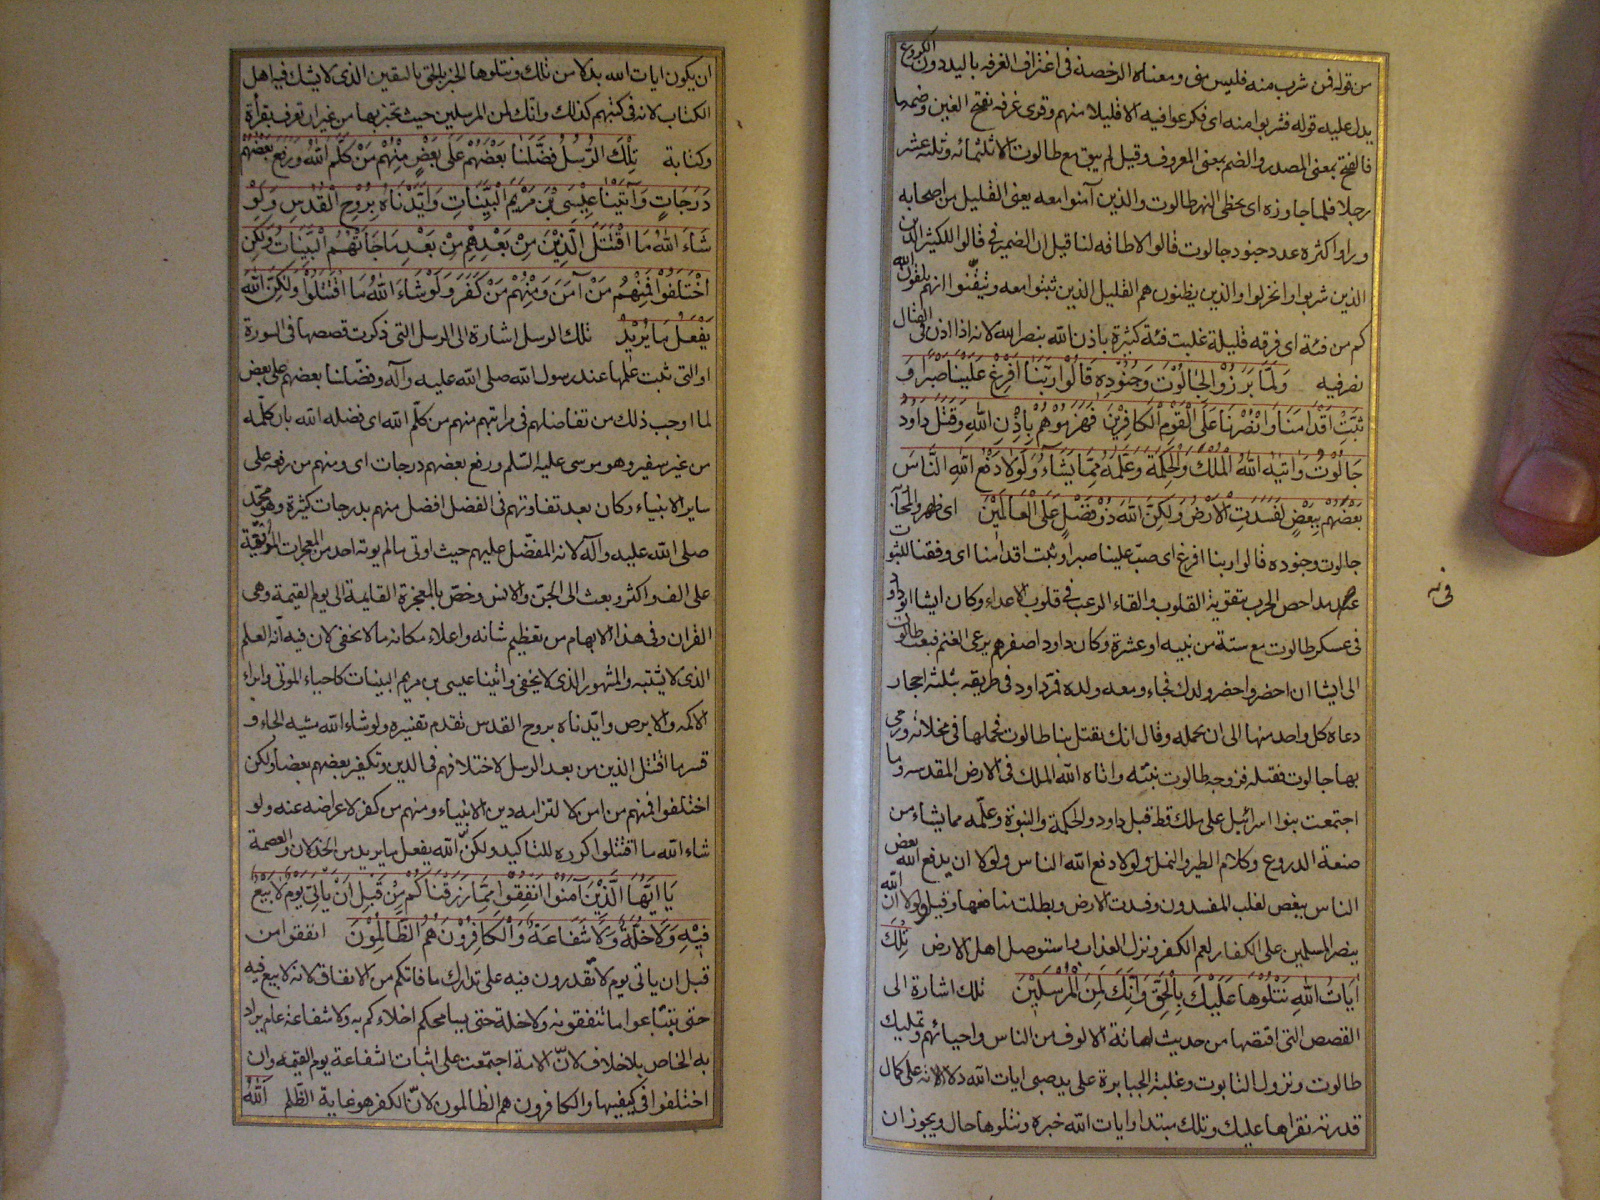 من قوله فمن شرب منه فليس مني ومعناه الرخصة في اغتراف الغرفه باليد دون الكروع
يدل عليه قوله فشربوا منه اي فكرعوا فيه الا قليلا منهم وقرئ غرفه بفتح الغين وضمها
فالفتح بمعنى المصدر والضم بمعنى المعروف وقيل لم يبق مع طالوت الا ثلثمائه وثلثه عشر
رجلا فلما جاوزه اي تخطى النهر طالوت والذين آمنوا معه يعني القليل من اصحابه
وراوا كثره عدد جنود جالوت قالوا لا طاقه لنا قيل ان الضمير في قالوا للكثير الذين
الذين شربوا وانخزلوا والذين يظنون هم القليل الذين ثبتوا معه وتيقنوا انهم يلقون الله
كم من فئة اي فرقه قليلة غلبت فئة كثيرة باذن الله بنصر الله لانه اذا اذن في القتال
نصر فيه وَلَمَّا بَرَزُوْا لِجَالُوْتَ وَجُنُوْدِهِ قَالُوْا رَبَّنَا اَفْرِغْ عَلَيْنَا صَبْرًا وَ
ثَبِّتْ اَقْدَامَنَا وَانْصُرْنَا عَلَى الْقَوْمِ الْكَافِرِيْنَ فَهَزَمُوْهُمْ بِاِذْنِ اللهِ وَقَتَلَ دَاوُدُ
جَالُوْتَ وَاٰتٰيهُ اللهُ الْمُلْكَ وَالْحِكْمَةَ وَعَلَّمَهُ مِمَّا يَشَاءُ وَلَوْلَا دَفْعُ اللهِ النَّاسَ
بَعْضَهُمْ بِبَعْضٍ لَفَسَدَتِ الْاَرْضُ وَلٰكِنَّ اللهَ ذُوْ فَضْلٍ عَلَى الْعَالَمِيْنَ اي ظهروا لمحاربة
جالوت وجنوده قالوا ربنا افرغ اي صب علينا صبرا وثبت اقدامنا اي وفقنا للثبوت
عند مداحض الحرب بتقوية القلوب والقاء الرعب في قلوب الاعداء وكان ايشا ابو داود
في عسكر طالوت مع ستة من بنيه او عشرة وكان داود اصغرهم يرعى الغنم فبعث طالوت
الى ايشا ان احضر واحضر ولدك فجاء ومعه ولده فمر داود في طريقه بثلثه احجار
دعاه كل واحد منها الى ان يحمله وقال انك تقتل بنا طالوت فحملها في مخلاته ورمى
بها جالوت فقتله فزوجه طالوت بنته واتاه الله الملك في الارض المقدسه وما
اجتمعت بنوا اسرائيل على ملك قط قبل داود والحكمة والنبوة وعلمه مما يشاء من
صنعة الدروع وكلام الطير والنمل ولولا دفع الله الناس ولولا ان يدفع الله بعض
الناس ببعض لغلب المفسدون وفسدت الارض وبطلت منافعها وقيل ولولا ان الله
ينصر المسلمين على الكفار لعم الكفر ونزل العذاب واستوصل اهل الارض تِلْكَ
اٰيَاتُ اللهِ نَتْلُوْهَا عَلَيْكَ بِالْحَقِّ وَاِنَّكَ لَمِنَ الْمُرْسَلِيْنَ تلك اشارة الى
القصص التي اقتصها من حديث اماتة الالوف من الناس واحيائهم وتمليك
طالوت ونزول التابوت وغلبة الجبابرة على يد صبي ايات الله دلالاته على كمال
قدرته نقراها عليك وتلك مبتدا وايات الله خبره ونتلوها حال ويجوز ان
ان يكون ايات الله بدلا من تلك ونتلوها الخبر بالحق باليقين الذي لا يشك فيه اهل
الكتاب لانه في كتبهم كذلك وانك لمن المرسلين حيث تخبر بها من غير ان تعرف بقرأة
وكتابة تِلْكَ الرُّسُلُ فَضَّلْنَا بَعْضَهُمْ عَلَى بَعْضٍ مِنْهُمْ مَنْ كَلَّمَ اللهُ وَرَفَعَ بَعْضَهُمْ
دَرَجَاتٍ وَآتَيْنَا عِيْسَى بْنَ مَرْيَمَ الْبَيِّنَاتِ وَاَيَّدْنَاهُ بِرُوْحِ الْقُدُسِ وَلَوْ
شَاءَ اللهُ مَا اقْتَتَلَ الَّذِيْنَ مِنْ بَعْدِهِمْ مِنْ بَعْدِ مَا جَاءَتْهُمُ الْبَيِّنَاتُ وَلٰكِنِ
اخْتَلَفُوْا فَمِنْهُمْ مَنْ آمَنَ وَمِنْهُمْ مَنْ كَفَرَ وَلَوْ شَاءَ اللهُ مَا اقْتَتَلُوْا وَلٰكِنَّ اللهَ
يَفْعَلُ مَا يُرِيْدُ تلك الرسل اشارة الى الرسل التي ذكرت قصصها في السورة
او التي ثبت علمها عند رسول الله صلى الله عليه وآله وفضلنا بعضهم على بعض
لما اوجب ذلك من تفاضلهم في مراتبهم منهم من كلم الله اي فضله الله بان كلمه
من غير سفير وهو موسى عليه السلم ورفع بعضهم درجات اي ومنهم من رفعه على
ساير الانبياء وكان بعد تفاوتهم في الفضل افضل منهم بدرجات كثيرة وهو محمد
صلى الله عليه وآله لانه المفضل عليهم حيث اوتي ما لم يوته احد من المعجزات المرتقية
على الف واكثر وبعث الى الجن والانس وخص بالمعجزة القايمة الى يوم القيمة وهي
القران وفي هذا الابهام من تعظيم شانه واعلاء مكانه ما لا يخفى لان فيه انه العلم
الذي لا يشتبه والمشهور الذي لا يخفى واتينا عيسى بن مريم البينات كاحياء الموتى وابراء
الاكمه والابرص وايدناه بروح القدس تقدم تفسيره ولو شاء الله مشية الجاء و
قسر ما اقتتل الذين من بعد الرسل لاختلافهم في الدين وتكفير بعضهم بعضا ولكن
اختلفوا فمنهم من امن لالتزامه دين الانبياء ومنهم من كفر لاعراضه عنه ولو
شاء الله ما اقتتلوا كرره للتاكيد ولكن الله يفعل ما يريد من الخذلان والعصمة
يَا اَيُّهَا الَّذِيْنَ آمَنُوْا اَنْفِقُوْا مِمَّا رَزَقْنَاكُمْ مِنْ قَبْلِ اَنْ يَأْتِيَ يَوْمٌ لَا بَيْعٌ
فِيْهِ وَلَا خُلَّةٌ وَلَا شَفَاعَةٌ وَالْكَافِرُوْنَ هُمُ الظَّالِمُوْنَ انفقوا من
قبل ان ياتي يوم لا تقدرون فيه على تدارك ما فاتكم من الانفاق لانه لا بيع فيه
حتى تبتاعوا ما تنفقونه ولا خلة حتى يسامحكم اخلاءكم به ولا شفاعة عام يراد
به الخاص بلا خلاف لان الامة اجتمعت على اثبات الشفاعة يوم القيمه وان
اختلفوا في كيفيتها والكافرون هم الظالمون لان الكفر هو غاية الظلم اَللهُ